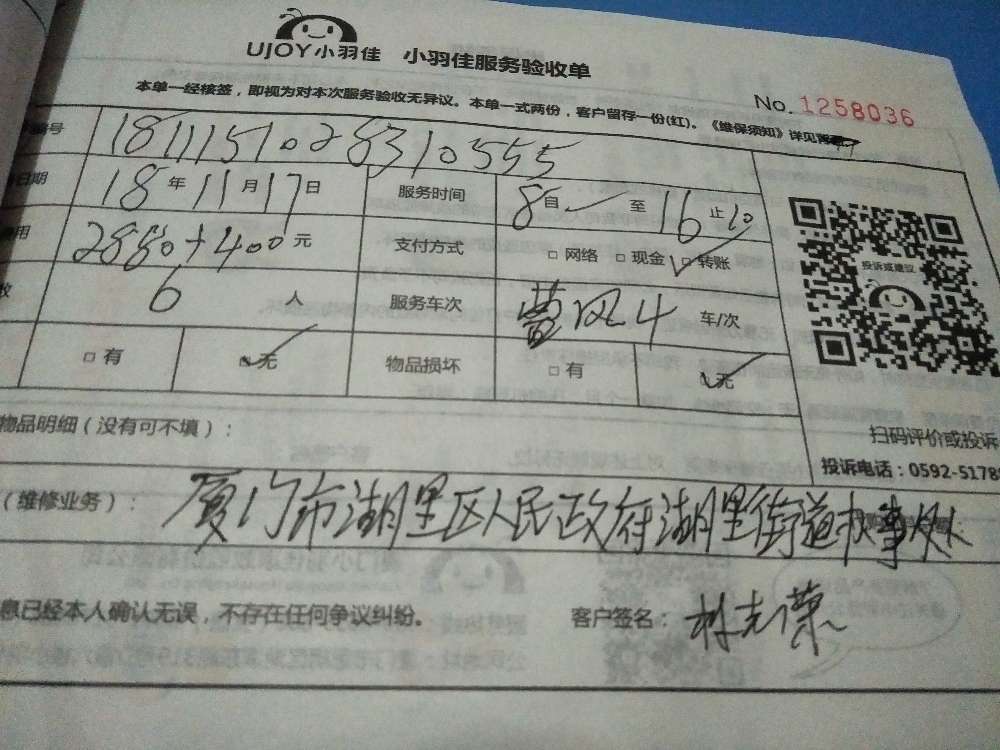 UJOY小羽佳 小羽佳服务验收单
本单一经核签，即视为对本次服务验收无异议。本单一式两份，客户留存一份(红)。《维保须知》详见背
No. 1258036
编号 1811151028310555
日期 18年11月17日 服务时间 8自 至 16止
用 2880+400元 支付方式 □网络 □现金 □转账
数 6人 服务车次 4 车/次
□有 □无 物品损坏 □有 □无
投诉或建议
扫码评价或投诉
投诉电话：0592-5178
物品明细（没有可不填）：
（维修业务）： 厦门市湖里区人民政府湖里街道办事处
息已经本人确认无误，不存在任何争议纠纷。 客户签名：